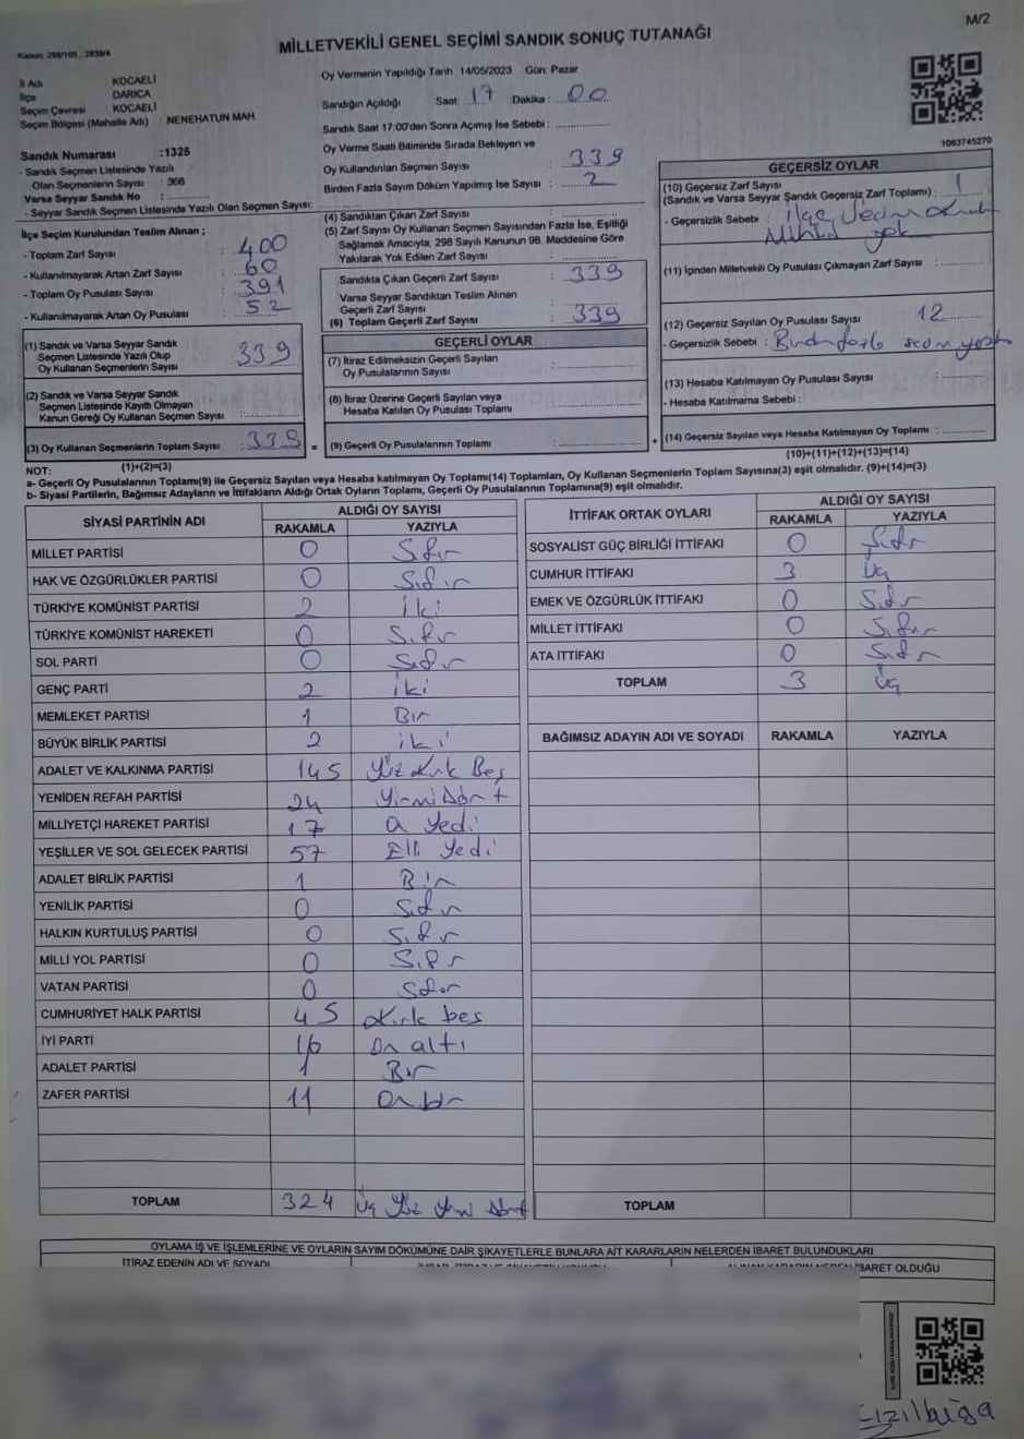 M/2
MİLLETVEKİLİ GENEL SEÇİMİ SANDIK SONUÇ TUTANAĞI
İl Adı KOCAELİ
İlçe DARICA
Seçim Çevresi : KOCAELİ
Seçim Bölgesi (Mahalle Adı) NENEHATUN MAH.
Sandık Numarası :1325
- Sandık Seçmen Listesinde Yazılı
Olan Seçmenlerin Sayısı : 366
Varsa Seyyar Sandık No :
- Seyyar Sandık Seçmen Listesinde Yazılı Olan Seçmen Sayısı:
İlçe Seçim Kurulundan Teslim Alınan ;
- Toplam Zarf Sayısı : 400
- Kullanılmayarak Artan Zarf Sayısı : 60
- Toplam Oy Pusulası Sayısı : 391
- Kullanılmayarak Artan Oy Pusulası : 52
(1) Sandık ve Varsa Seyyar Sandık
Seçmen Listesinde Yazılı Olup
Oy Kullanan Seçmenlerin Sayısı : 339
(2) Sandık ve Varsa Seyyar Sandık
Seçmen Listesinde Kayıtlı Olmayan
Kanun Gereği Oy Kullanan Seçmen Sayısı :
(3) Oy Kullanan Seçmenlerin Toplam Sayısı : 339 =
Oy Vermenin Yapıldığı Tarih 14/05/2023 Gün: Pazar
Sandığın Açıldığı Saat: 17 Dakika : 00
Sandık Saat 17:00'den Sonra Açımış İse Sebebi :
Oy Verme Saati Bitiminde Sırada Bekleyen ve
Oy Kullandırılan Seçmen Sayısı : 339
Birden Fazla Sayım Döküm Yapılmış İse Sayısı : 2
(4) Sandıktan Çıkan Zarf Sayısı :
(5) Zarf Sayısı Oy Kullanan Seçmen Sayısından Fazla İse, Eşitliği
Sağlamak Amacıyla, 298 Sayılı Kanunun 98. Maddesine Göre
Yakılarak Yok Edilen Zarf Sayısı :
Sandıkta Çıkan Geçerli Zarf Sayısı : 339
Varsa Seyyar Sandıktan Teslim Alınan
Geçerli Zarf Sayısı :
(6) Toplam Geçerli Zarf Sayısı : 339
GEÇERLİ OYLAR
(7) İtiraz Edilmeksizin Geçerli Sayılan
Oy Pusulalarının Sayısı :
(8) İtiraz Üzerine Geçerli Sayılan veya
Hesaba Katılan Oy Pusulası Toplamı :
(9) Geçerli Oy Pusulalarının Toplamı : +
1063745270
GEÇERSİZ OYLAR
(10) Geçersiz Zarf Sayısı
(Sandık ve Varsa Seyyar Sandık Geçersiz Zarf Toplamı) : 1
- Geçersizlik Sebebi : ilçe
yok
(11) İçinden Milletvekili Oy Pusulası Çıkmayan Zarf Sayısı :
(12) Geçersiz Sayılan Oy Pusulası Sayısı 12
- Geçersizlik Sebebi : Birden fazla
(13) Hesaba Katılmayan Oy Pusulası Sayısı :
- Hesaba Katılmama Sebebi :
(14) Geçersiz Sayılan veya Hesaba Katılmayan Oy Toplamı :
(10)+(11)+(12)+(13)=(14)
NOT: (1)+(2)=(3)
a- Geçerli Oy Pusulalarının Toplamı(9) ile Geçersiz Sayılan veya Hesaba katılmayan Oy Toplamı(14) Toplamları, Oy Kullanan Seçmenlerin Toplam Sayısına(3) eşit olmalıdır. (9)+(14)=(3)
b- Siyasi Partilerin, Bağımsız Adayların ve İttifakların Aldığı Ortak Oyların Toplamı, Geçerli Oy Pusulalarının Toplamına(9) eşit olmalıdır.
SİYASİ PARTİNİN ADI ALDIĞI OY SAYISI
RAKAMLA YAZIYLA
MİLLET PARTİSİ 0 Sıfır
HAK VE ÖZGÜRLÜKLER PARTİSİ 0 Sıfır
TÜRKİYE KOMÜNİST PARTİSİ 2 iki
TÜRKİYE KOMÜNİST HAREKETİ 0 Sıfır
SOL PARTİ 0 Sıfır
GENÇ PARTİ 2 iki
MEMLEKET PARTİSİ 1 Bir
BÜYÜK BİRLİK PARTİSİ 2 iki
ADALET VE KALKINMA PARTİSİ 145 Yüz Kırk Beş
YENİDEN REFAH PARTİSİ 24 Yirmi Dört
MİLLİYETÇİ HAREKET PARTİSİ 17 On Yedi
YEŞİLLER VE SOL GELECEK PARTİSİ 57 Elli Yedi
ADALET BİRLİK PARTİSİ 1 Bir
YENİLİK PARTİSİ 0 Sıfır
HALKIN KURTULUŞ PARTİSİ 0 Sıfır
MİLLİ YOL PARTİSİ 0 Sıfır
VATAN PARTİSİ 0 Sıfır
CUMHURİYET HALK PARTİSİ 45 Kırk beş
İYİ PARTİ 16 On altı
ADALET PARTİSİ 1 Bir
ZAFER PARTİSİ 11 On bir
TOPLAM 324 Üç Yüz Yirmi Dört
İTTİFAK ORTAK OYLARI ALDIĞI OY SAYISI
RAKAMLA YAZIYLA
SOSYALİST GÜÇ BİRLİĞİ İTTİFAKI 0 Sıfır
CUMHUR İTTİFAKI 3 Üç
EMEK VE ÖZGÜRLÜK İTTİFAKI 0 Sıfır
MİLLET İTTİFAKI 0 Sıfır
ATA İTTİFAKI 0 Sıfır
TOPLAM 3 Üç
BAĞIMSIZ ADAYIN ADI VE SOYADI RAKAMLA YAZIYLA
TOPLAM
OYLAMA İŞ VE İŞLEMLERİNE VE OYLARIN SAYIM DÖKÜMÜNE DAİR ŞİKAYETLERLE BUNLARA AİT KARARLARIN NELERDEN İBARET BULUNDUKLARI
İTİRAZ EDENİN ADI VE SOYADI
İBARET OLDUĞU